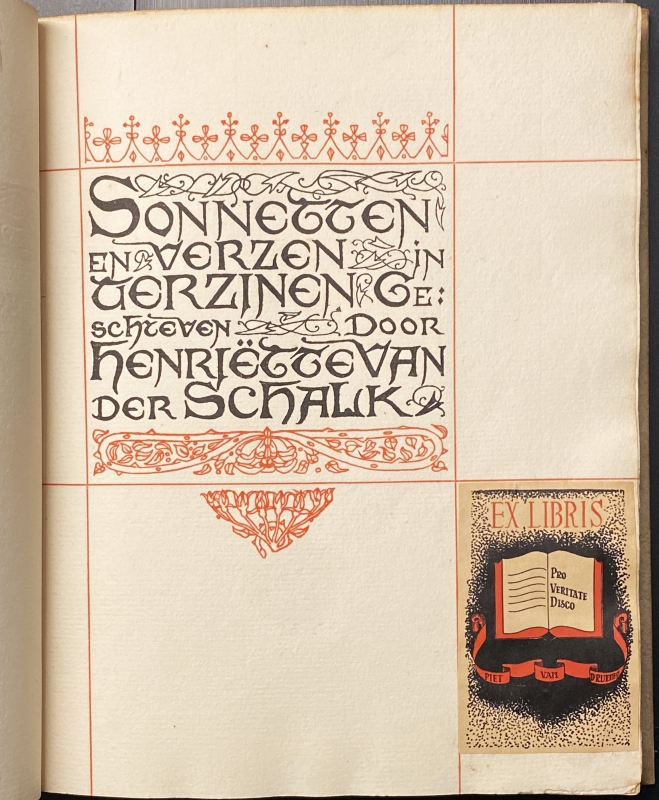 SONNETTEN
EN VERZEN IN
TERZINEN GE:
SCHREVEN DOOR
HENRIËTTE VAN
DER SCHALK
EX LIBRIS
PRO
VERITATE
DISCO
PIET VAN